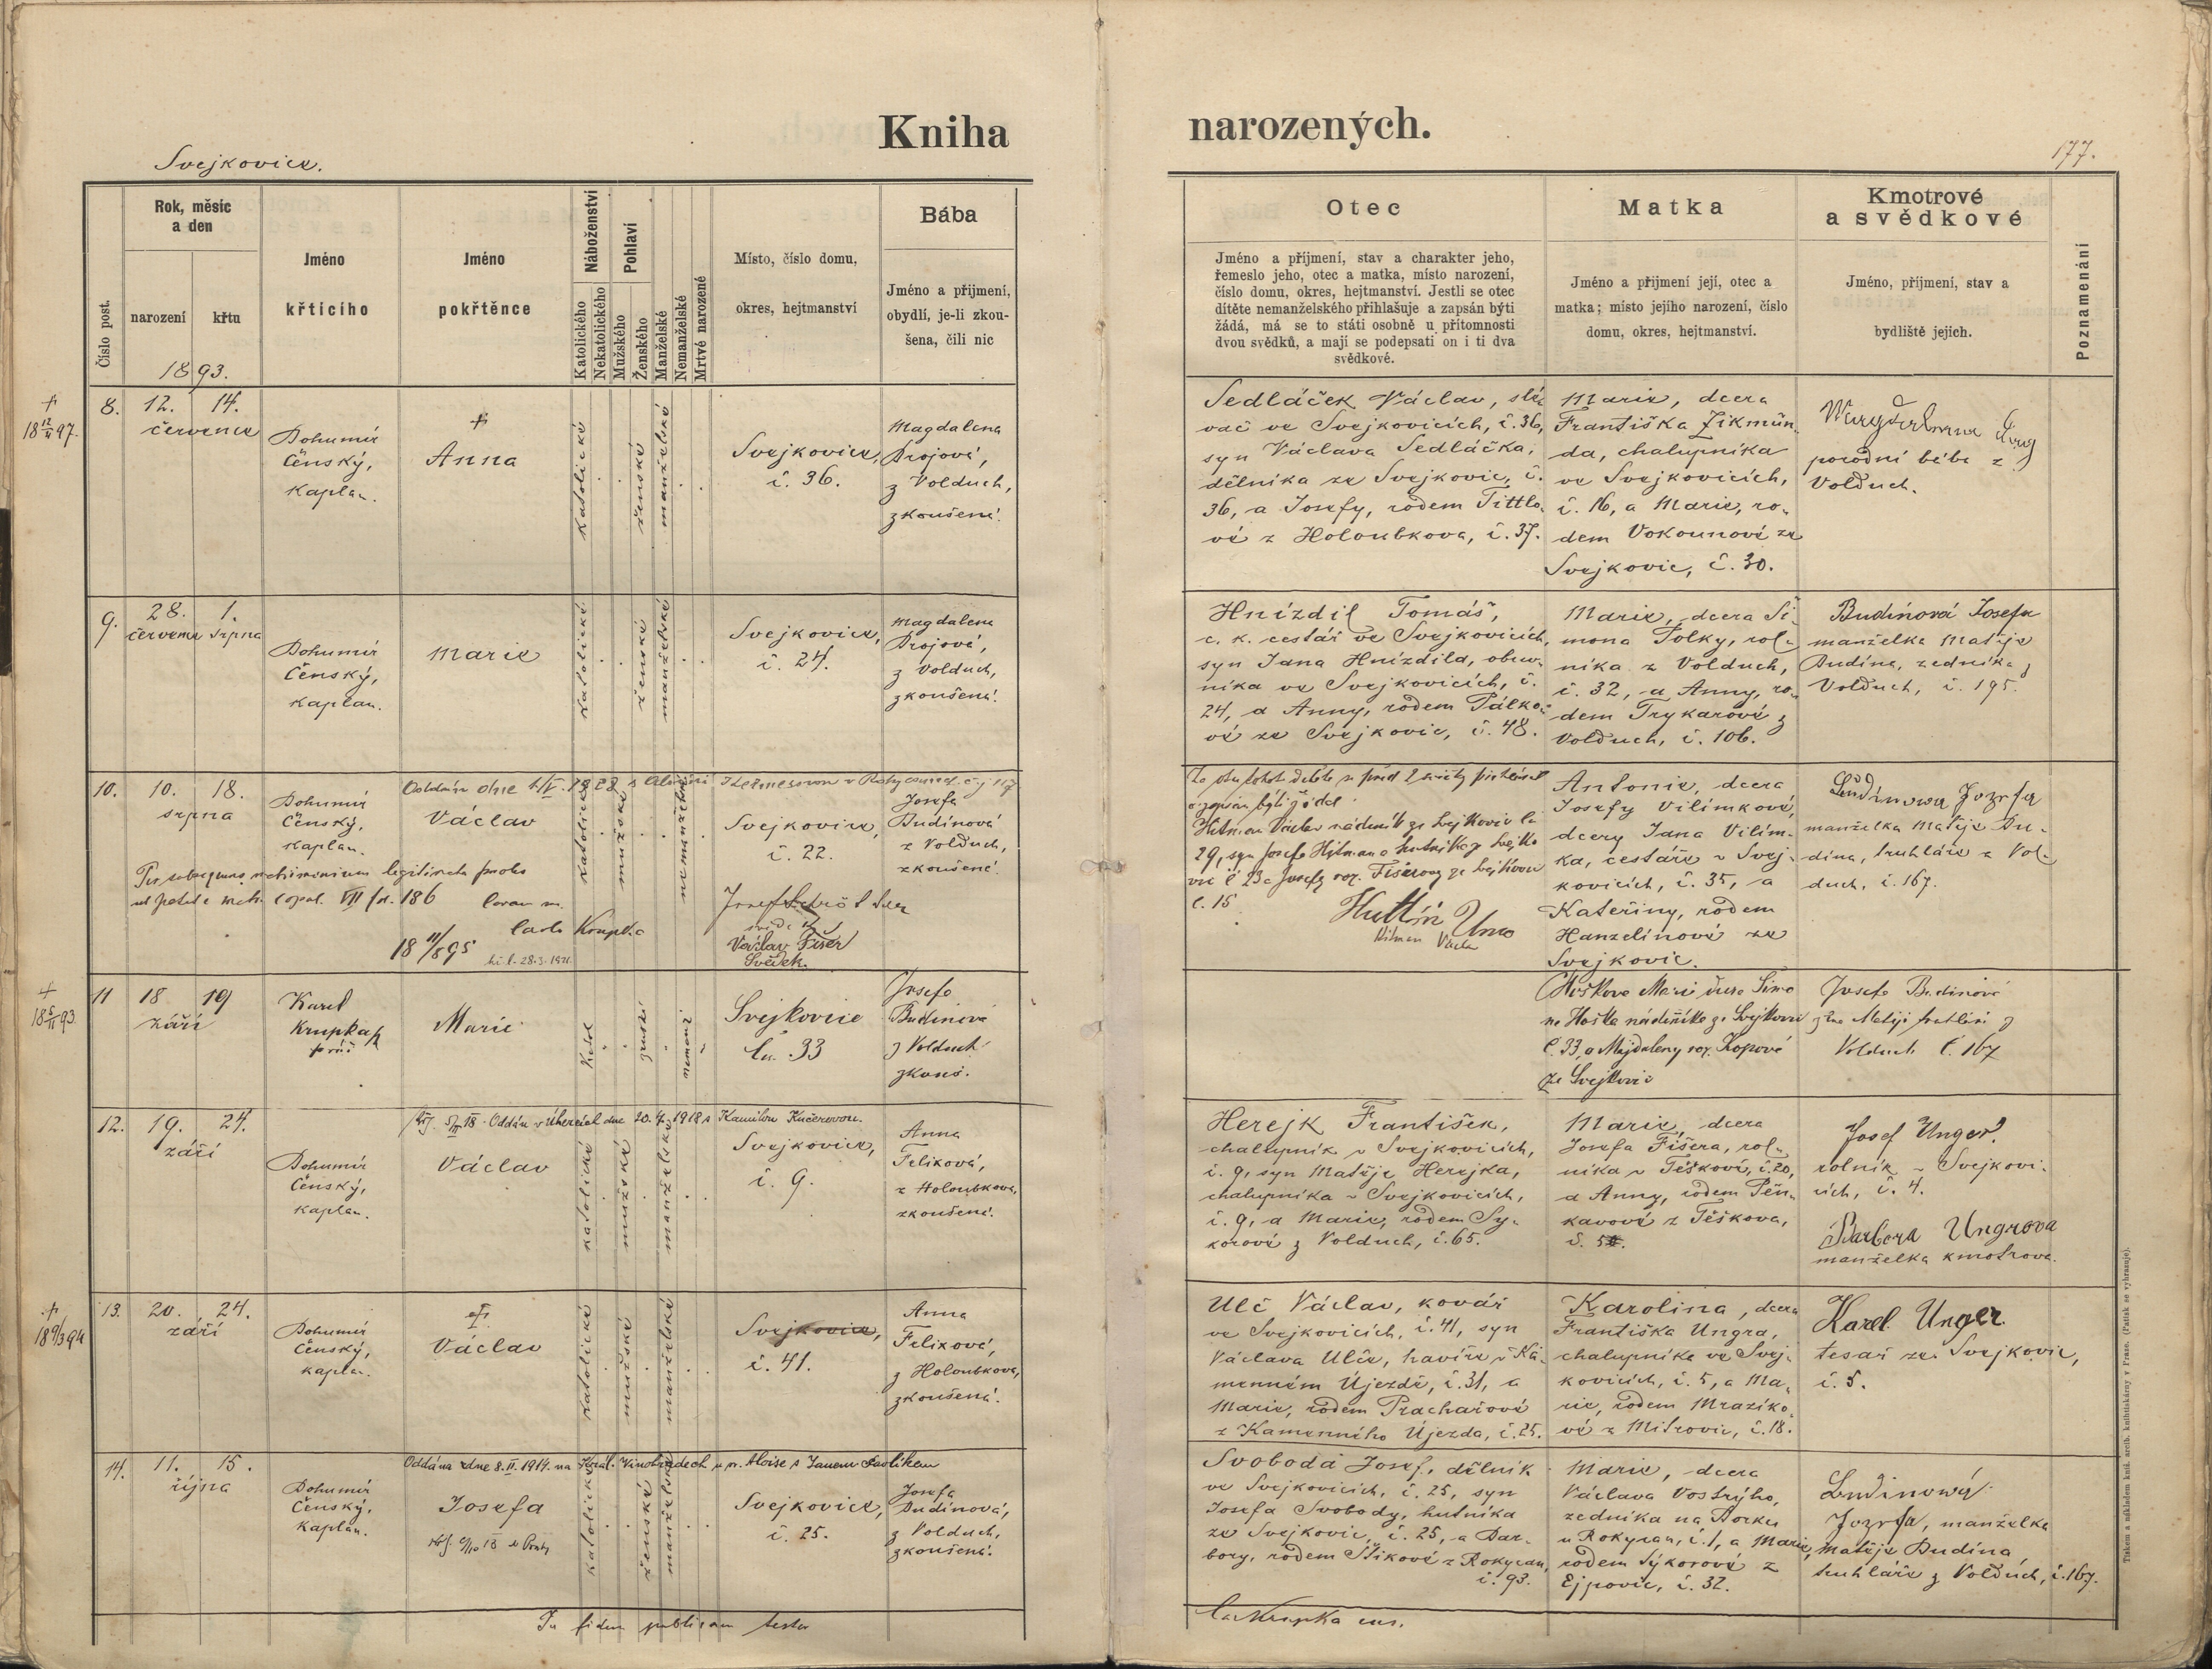 Kniha
narozených.
Svejkovice.
177.
Číslo post.
Rok, měsíc
a den
narození
křtu
1893.
Jméno
křticího
Jméno
pokřtěnce
Náboženství
Katolického
Nekatolického
Pohlaví
Mužského
Ženského
Manželské
Nemanželské
Mrtvé narozené
Místo, číslo domu,
okres, hejtmanství
Bába
Jméno a přijmení,
obydlí, je-li zkou-
šena, čili nic
Otec
Jméno a příjmení, stav a charakter jeho,
řemeslo jeho, otec a matka, místo narození,
číslo domu, okres, hejtmanství. Jestli se otec
dítěte nemanželského přihlašuje a zapsán býti
žádá, má se to státi osobně u přítomnosti
dvou svědků, a mají se podepsati on i ti dva
svědkové.
Matka
Jméno a přijmení její, otec a
matka; místo jejího narození, číslo
domu, okres, hejtmanství.
Kmotrové
a svědkové
Jméno, příjmení, stav a
bydliště jejich.
Poznamenání
8.
12. 14.
července
Bohumír
Čěnský,
kaplan.
+
Anna
katolické
ženské
manželské
Svejkovice,
č. 36.
Magdalena
Brojová,
z Volduch,
zkoušená.
Sedláček Václav, slé-
vač ve Svejkovicích, č. 36,
syn Václava Sedláčka,
dělníka ze Svejkovic, č.
36, a Josefy, rodem Tittlo-
vé z Holoubkova, č. 37.
Marie, dcera
Františka Zikmun-
da, chalupníka
ve Svejkovicích,
č. 16, a Marie, ro-
dem Vokounové ze
Svejkovic, č. 30.
porodní bába z
Volduch.
9.
28. 1.
července srpna
Bohumír
Čěnský,
kaplan.
Marie
katolické
ženské
manželské
Svejkovice,
č. 24.
Magdalena
Brojová,
z Volduch,
zkoušená.
Hnízdil Tomáš,
c. k. cestář ve Svejkovicích,
syn Jana Hnízdila, obuv-
níka ve Svejkovicích, č.
24, a Anny, rodem Pálko-
vé ze Svejkovic, č. 48.
Marie, dcera Ši-
mona Polky, rol-
níka z Volduch,
č. 32, a Anny, ro-
dem Trykarové z
Volduch, č. 106.
Budínová Josefa
manželka Matěje
Budína, zedníka z
Volduch, č. 195.
10.
10. 18.
srpna
Bohumír
Čěnský,
kaplan.
Václav
katolické
mužské
nemanželské
Svejkovice,
č. 22.
Josefa
Budínová
z Volduch,
zkoušená.
186
18 11/8 95
Václav Fišer
Svědek.
Hitman Václav
Antonie, dcera
Josefy Vilímkové,
dcery Jana Vilím-
ka, cestáře v Svej-
kovicích, č. 35, a
Kateřiny, rodem
Hanzelínové ze
Svejkovic.
manželka Matěje Bu-
dína, truhláře z Vol-
duch, č. 167.
11
18 19
září
Karel
Krupka
Marie
Svejkovice
33
Josefa
Budínová
z Volduch
zkouš.
Hošková Marie dcera Šimo-
na Hoška nádeníka ze Svejkovic
č. 33, a Majdaleny roz. Kopové
ze Svejkovic
Josefa Budínová
Volduch č. 167
12.
19. 24.
září
Bohumír
Čěnský,
kaplan.
Václav
katolické
mužské
manželské
Svejkovice,
č. 9.
Anna
Felixová,
z Holoubkova,
zkoušená.
Herejk František,
chalupník v Svejkovicích,
č. 9, syn Matěje Herejka,
chalupníka v Svejkovicích,
č. 9, a Marie, rodem Sy-
korové z Volduch, č. 65.
Marie, dcera
Josefa Fišera, rol-
níka v Těškově, č. 20,
a Anny, rodem Pěn-
kavové z Těškova,
Josef Unger,
rolník v Svejkovi-
cích, č. 4.
Barbora Ungrova
manželka kmotrova.
13.
20. 24.
září
Bohumír
Čěnský,
kaplan.
Václav
katolické
mužské
manželské
Svejkovice,
č. 41.
Anna
Felixová,
z Holoubkova,
zkoušená.
Ulč Václav, kovář
ve Svejkovicích, č. 41, syn
Václava Ulče, havíře v Ka-
menném Újezdě, č. 31, a
Marie, rodem Prachařové
z Kamenného Újezda, č. 25.
Karolina, dcera
Františka Ungra,
chalupníka ve Svej-
kovicích, č. 5, a Ma-
rie, rodem Mraziko-
vé z Mitrovic, č. 18.
Karel Unger.
tesař ze Svejkovic,
č. 5.
14.
11. 15.
října
Bohumír
Čěnský,
kaplan.
Oddána dne 8. II. 1914. na Král. Vinohradech u sv. Aloise s Janem Pavlíkem
Josefa
katolické
ženské
manželské
Svejkovice,
č. 25.
Josefa
Budínová,
z Volduch,
zkoušená.
Svoboda Josef, dělník
ve Svejkovicích, č. 25, syn
Josefa Svobody, hutníka
ze Svejkovic, č. 25, a Bar-
bory, rodem Šikové z Rokycan,
č. 93.
Marie, dcera
Václava Vostrýho,
zedníka na Borku
u Rokycan, č. 1, a Marie,
rodem Sýkorové z
Ejpovic, č. 32.
Budinowá
Jozefa, manželka
Matěje Budína
truhláře z Volduch, č. 167.
In fidem publicam testor
Krupka
Tiskem a nákladem kníž. arcib. knihtiskárny v Praze. (Patisk se vyhrazuje).